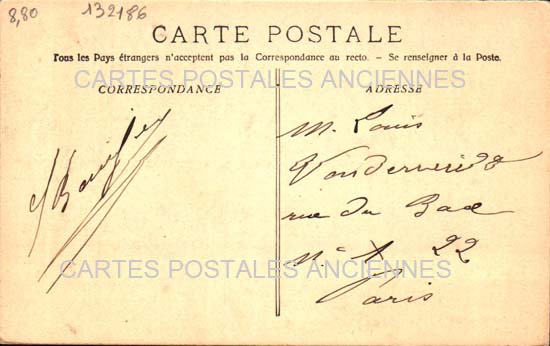 8,80
132186
CARTE POSTALE
Tous les Pays étrangers n'acceptent pas la Correspondance au recto. - Se renseigner à la Poste.
CARTES POSTALES ANCIENNES
CORRESPONDANCE
ADRESSE
M. Louis
rue du Bac
No 22
Paris
CARTES POSTALES ANCIENNES